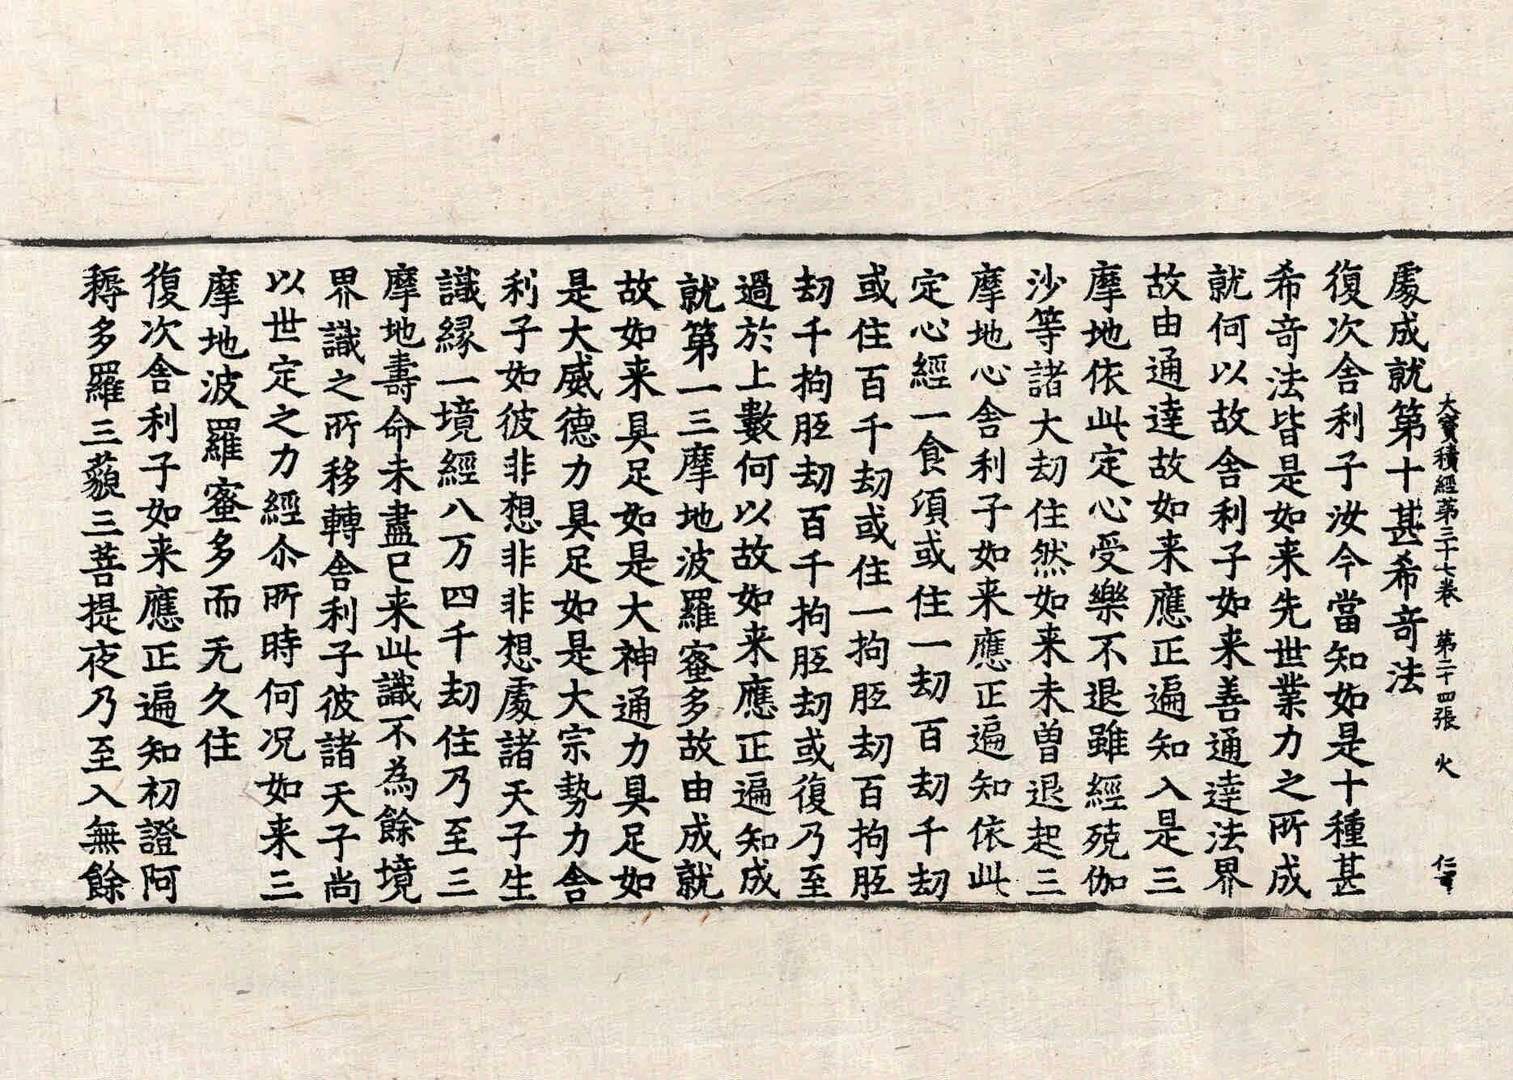 大寶積經第三十七卷　第二十四張　火　仁
處成就第十甚希奇法
復次舍利子汝今當知如是十種甚
希奇法皆是如来先世業力之所成
就何以故舍利子如来善通達法界
故由通達故如来應正遍知入是三
摩地依此定心受樂不退雖經殑伽
沙等諸大劫住然如来未曽退起三
摩地心舍利子如来應正遍知依此
定心經一食湏或住一劫百劫千劫
或住百千劫或住一拘胝劫百拘胝
劫千拘胝劫百千拘胝劫或復乃至
過於上數何以故如来應正遍知成
就第一三摩地波羅蜜多故由成就
故如来具足如是大神通力具足如
是大威德力具足如是大宗勢力舍
利子如彼非想非非想處諸天子生
識縁一境經八万四千劫住乃至三
摩地壽命未盡已来此識不為餘境
界識之所移轉舍利子彼諸天子尚
以世定之力經尒所時何况如来三
摩地波羅蜜多而无久住
復次舍利子如来應正遍知初證阿
耨多羅三藐三菩提夜乃至入無餘